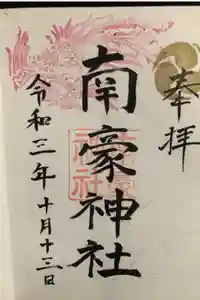 奉拝
南豪神社
令和三年十月十三日